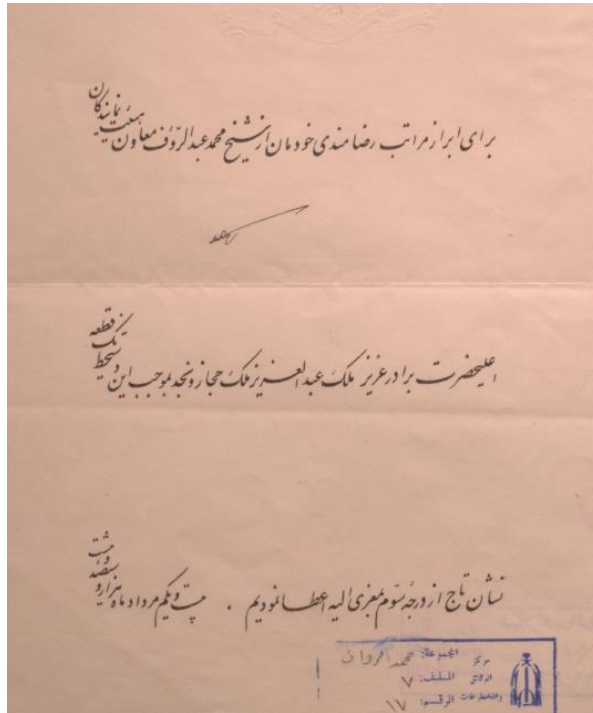 برای ابراز مراتب رضامندی خودمان از شیخ محمد عبدالرؤف معاون هیئت نمایندگان
اعلیحضرت برادر عزیز ملک عبدالعزیز ملک حجاز و نجد بموجب این دستخط یک قطعه
نشان تاج از درجه سوم بمعزی الیه اعطا نمودیم . بیست و یکم مرداد ماه هزار و سیصد و هشت
مركز الوثائق والمخطوطات
المجموعة: محمد الروان
الملف: ٧
الرقم: ١٧